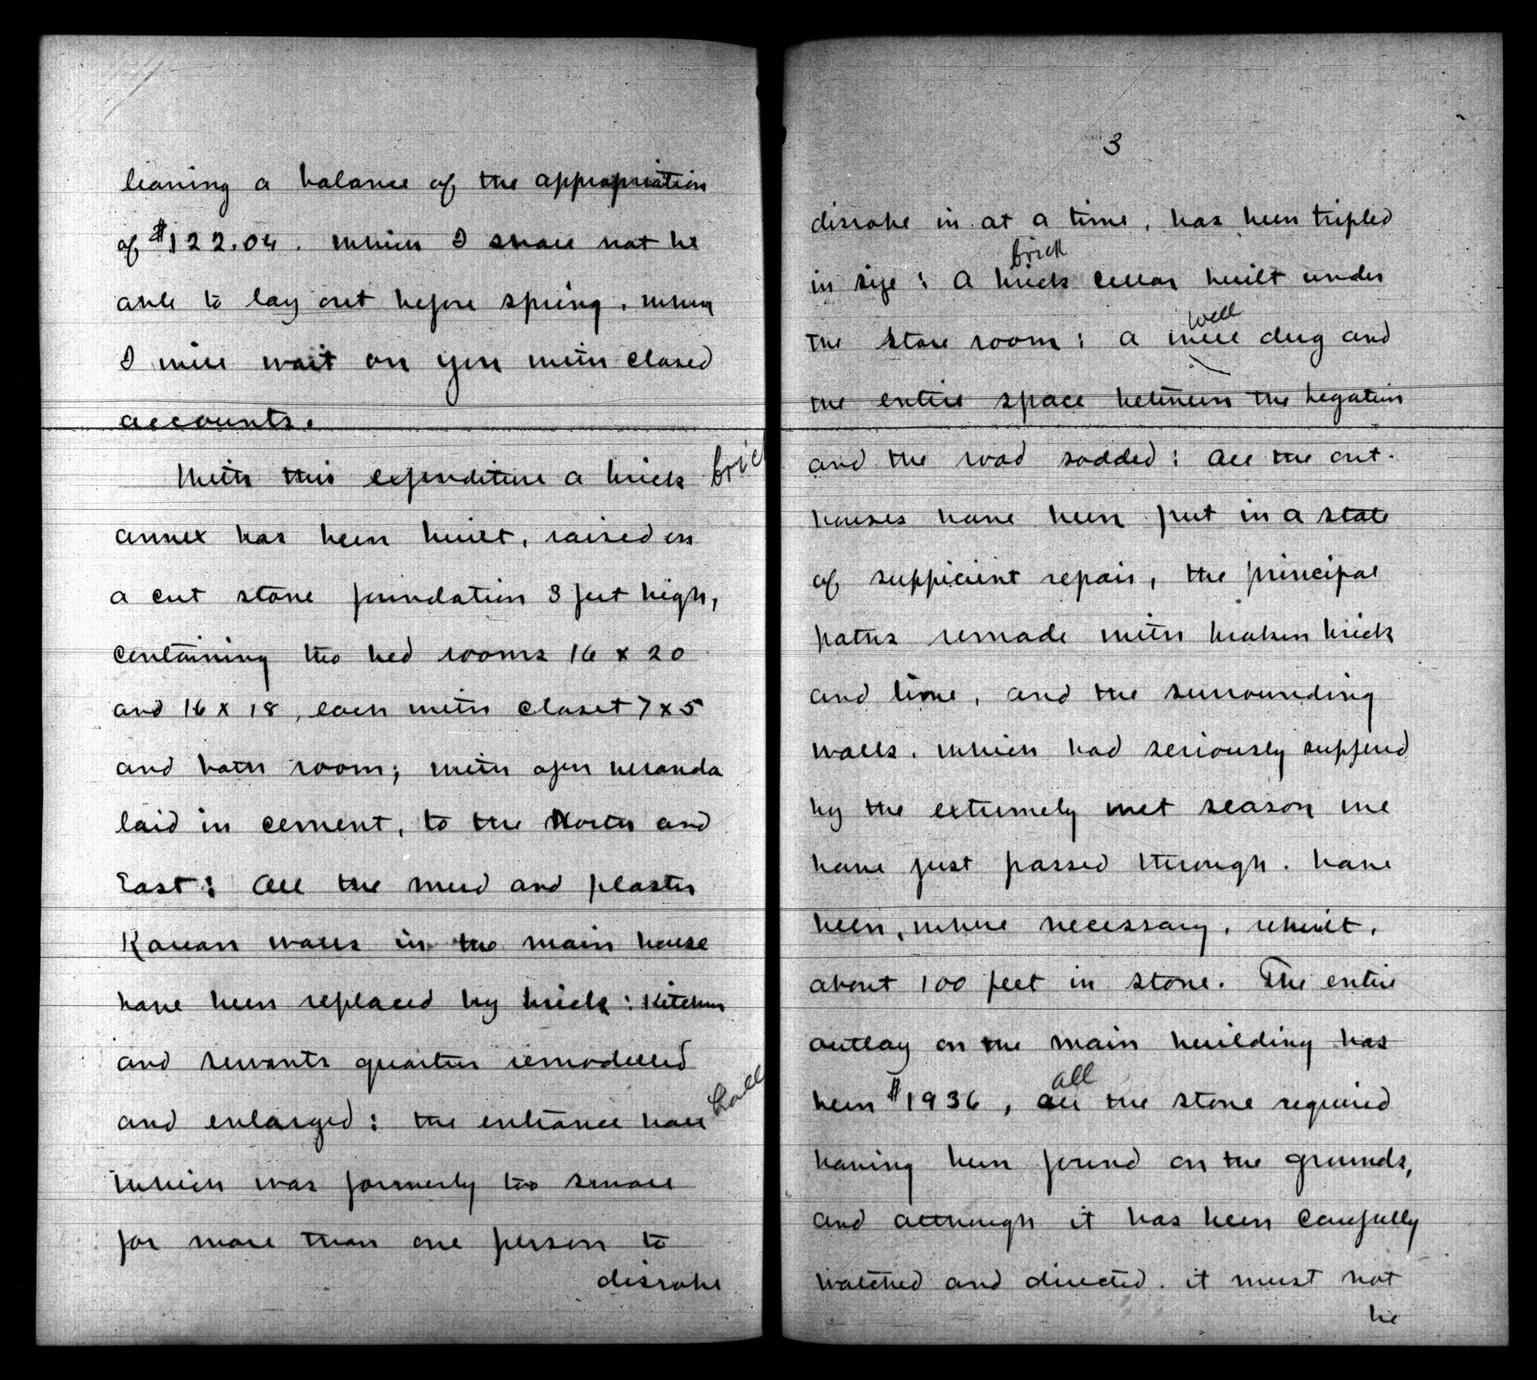 leaving a balance of the appropriation
of $122.04. which I shall not be
able to lay out before spring, when
I will wait on you with closed
accounts.
With this expenditure a brick bric
annex has been built, raised on
a cut stone foundation 3 feet high,
containing two bed rooms 16 x 20
and 16 x 18, each with closet 7 x 5
and bath room; with open veranda
laid in cement, to the North and
East: All the mud and plaster
Korean walls in the main house
have been replaced by brick: Kitchen
and servants quarters remodelled
and enlarged: the entrance hall hall
which was formerly too small
for more than one person to
disrobe
3
disrobe in at a time, has been tripled
brick
in size: A brick cellar built under
well
the store room: a well dug and
the entire space between the Legation
and the road sodded: All the out-
houses have been put in a state
of sufficient repair, the principal
paths remade with broken brick
and lime, and the surrounding
walls, which had seriously suffered
by the extremely wet season we
have just passed through, have
been, where necessary, rebuilt,
about 100 feet in stone. The entire
outlay on the main building has
all
been $1936, all the stone required
having been found on the grounds,
and although it has been carefully
watched and directed, it must not
be